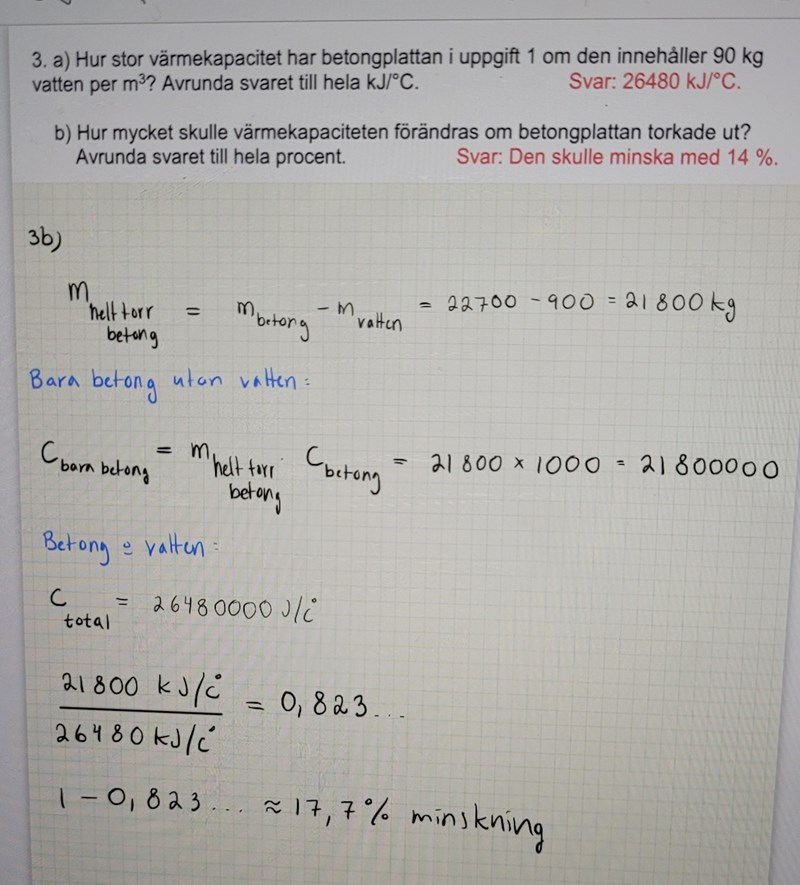 3. a) Hur stor värmekapacitet har betongplattan i uppgift 1 om den innehåller 90 kg
vatten per m³? Avrunda svaret till hela kJ/°C. Svar: 26480 kJ/°C.
b) Hur mycket skulle värmekapaciteten förändras om betongplattan torkade ut?
Avrunda svaret till hela procent. Svar: Den skulle minska med 14 %.
3b)
m helt torr betong = m betong - m vatten = 22700 - 900 = 21800 kg
Bara betong utan vatten:
C bara betong = m helt torr betong · C betong = 21800 × 1000 = 21800000
Betong o vatten:
C total = 26480000 J/c°
21800 kJ/c°
26480 kJ/c°
= 0,823...
1 - 0,823... ≈ 17,7% minskning